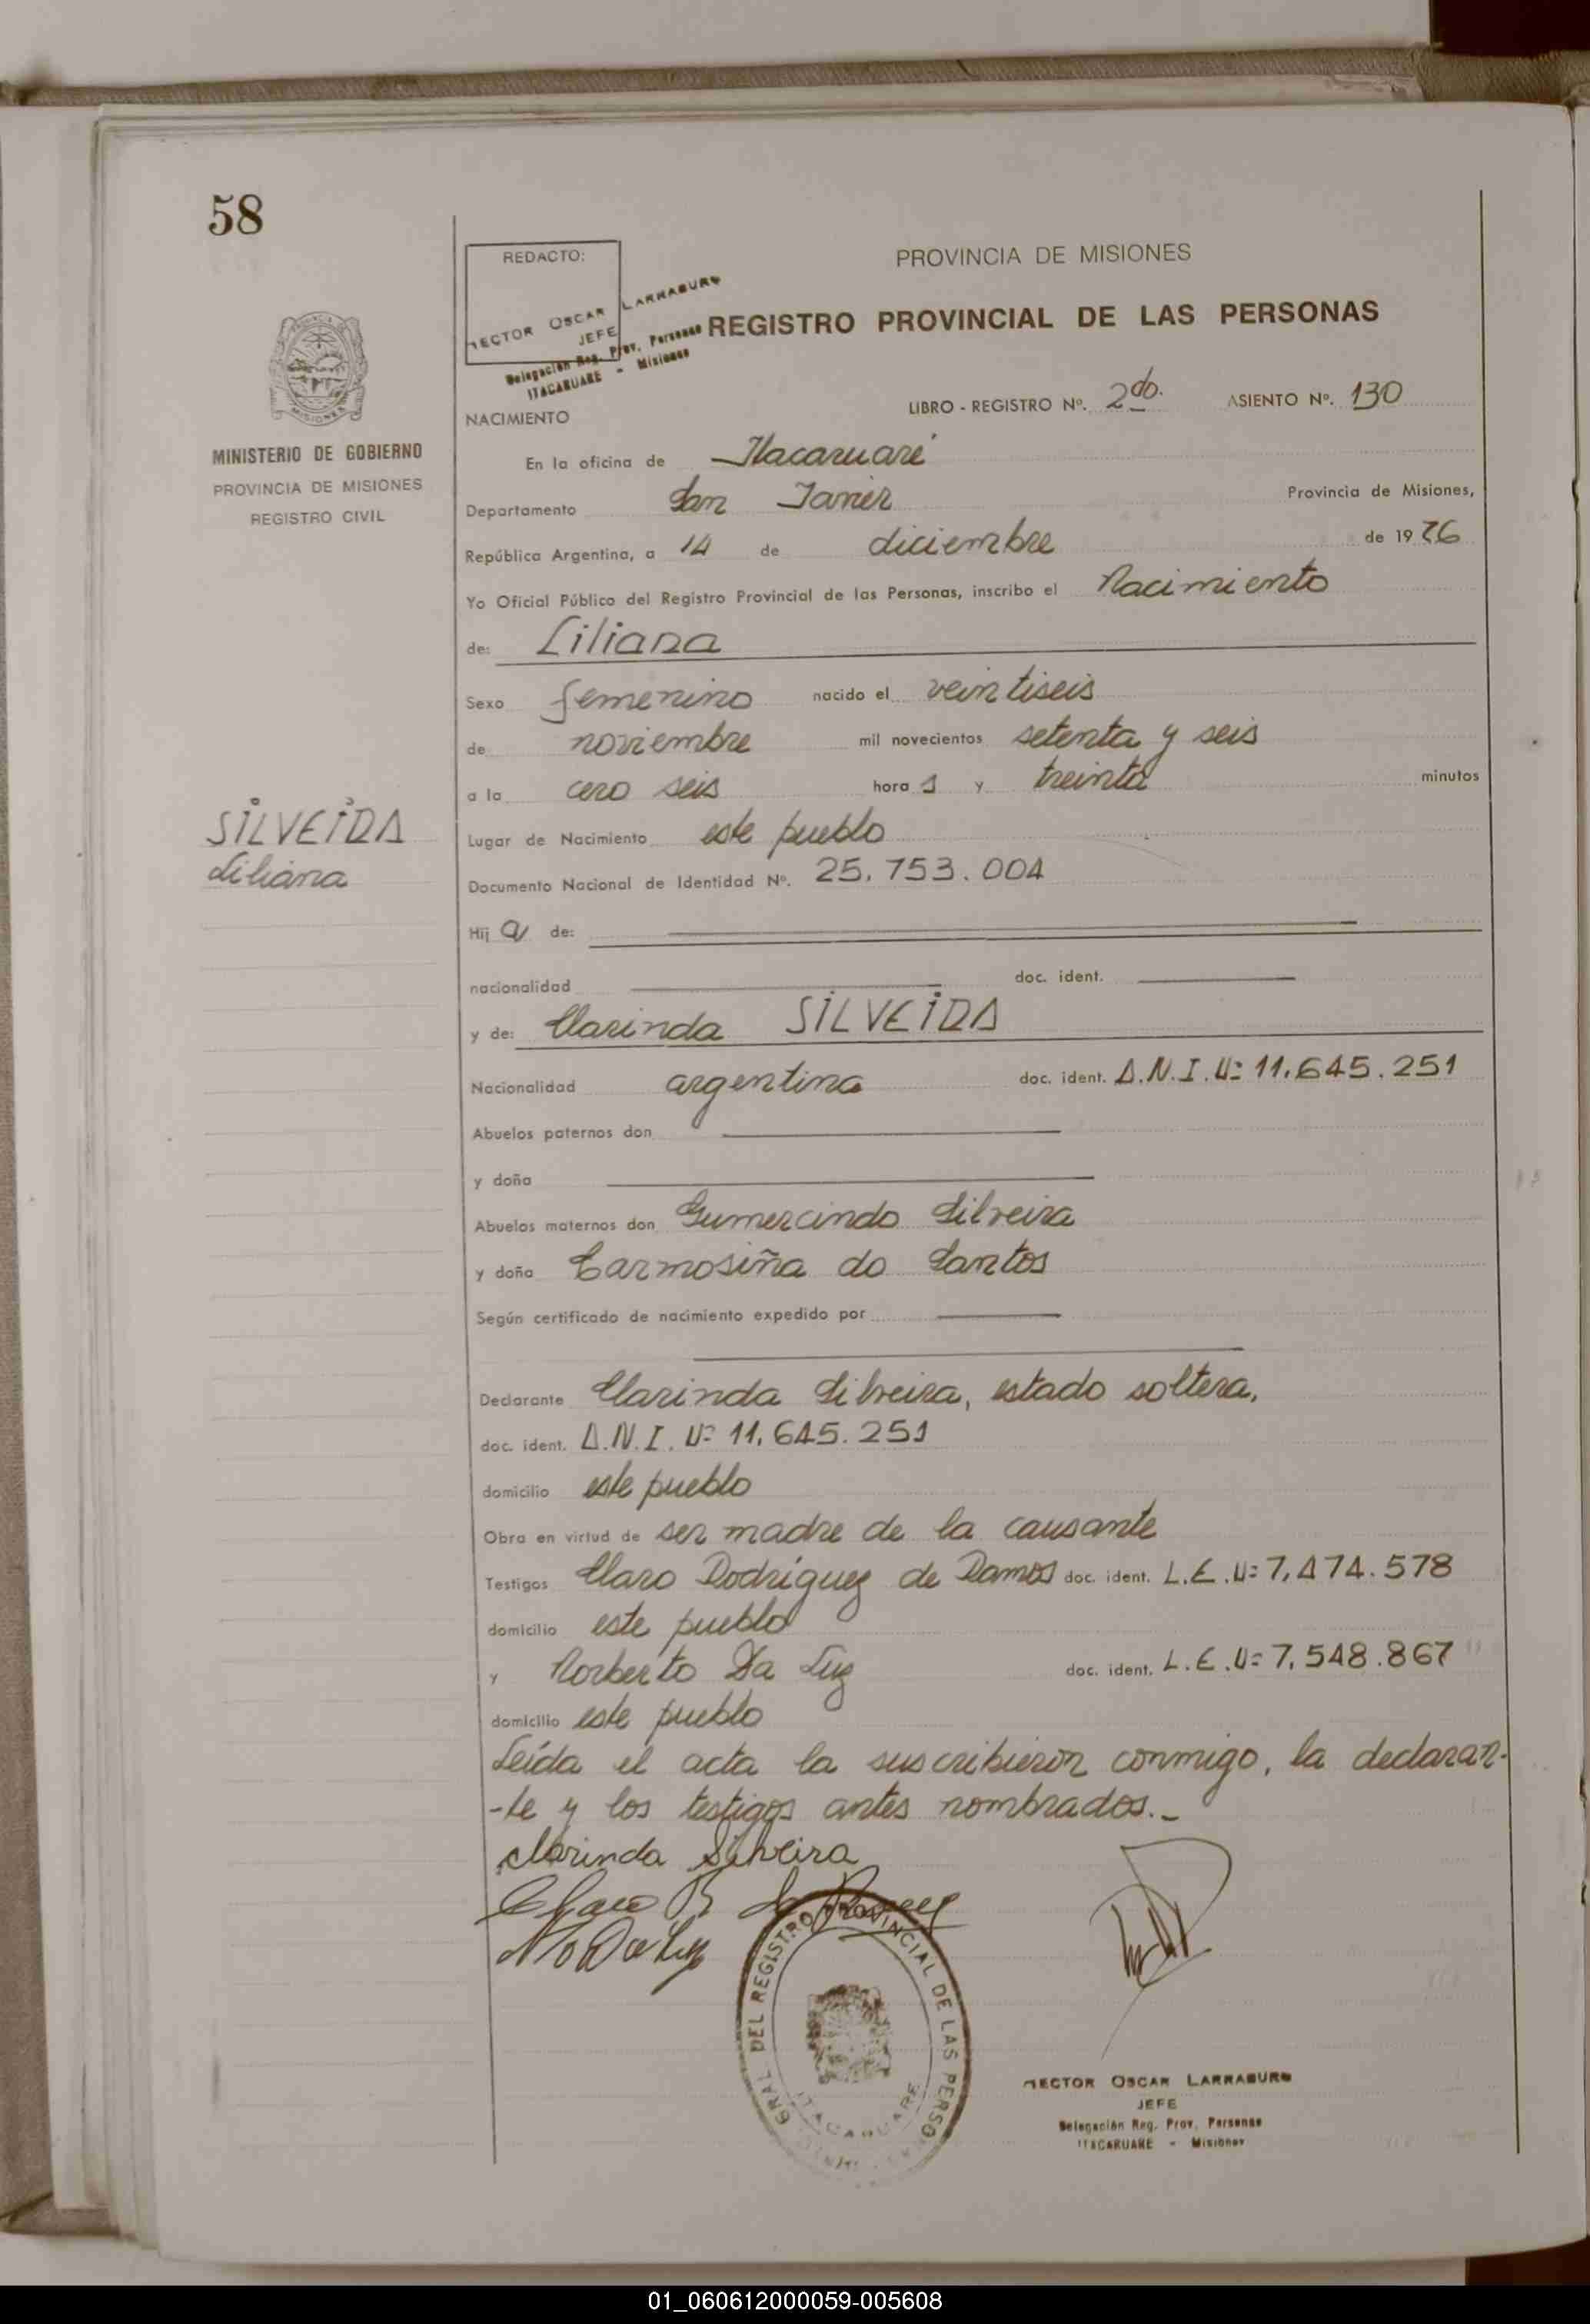 58
REDACTO:
HECTOR OSCAR LARRABURU
JEFE
Delegación Reg. Prov. Personas
ITACARUARE - Misiones
PROVINCIA DE MISIONES
REGISTRO PROVINCIAL DE LAS PERSONAS
LIBRO - REGISTRO Nº. 2do. ASIENTO Nº. 130
NACIMIENTO
MINISTERIO DE GOBIERNO
PROVINCIA DE MISIONES
REGISTRO CIVIL
En la oficina de Itacaruaré
Departamento San Javier Provincia de Misiones,
República Argentina, a 14 de diciembre de 1976
Yo Oficial Público del Registro Provincial de las Personas, inscribo el Nacimiento
de: Liliana
Sexo femenino nacido el veintiseis
de noviembre mil novecientos setenta y seis
a la cero seis hora s y treinta minutos
SILVEIRA
Liliana
Lugar de Nacimiento este pueblo
Documento Nacional de Identidad Nº. 25.753.004
Hij a de:
nacionalidad doc. ident.
y de: Clarinda SILVEIRA
Nacionalidad argentina doc. ident. D.N.I. Nº 11.645.251
Abuelos paternos don
y doña
Abuelos maternos don Gumercindo Silveira
y doña Carmosiña do Santos
Según certificado de nacimiento expedido por
Declarante Clarinda Silveira, estado soltera,
doc. ident. D.N.I. Nº 11.645.251
domicilio este pueblo
Obra en virtud de ser madre de la causante
Testigos Claro Rodríguez de Ramos doc. ident. L.E. Nº 7.474.578
domicilio este pueblo
y Norberto Da Luz doc. ident. L.E. Nº 7.548.867
domicilio este pueblo
Leída el acta la suscribieron conmigo, la declaran-
-te y los testigos antes nombrados.-
Clarinda Silveira
GRAL DEL REGISTRO PROVINCIAL DE LAS PERSO
ITACARUARE
HECTOR OSCAR LARRABURU
JEFE
Delegación Reg. Prov. Personas
ITACARUARE - Misiones
01_060612000059-005608